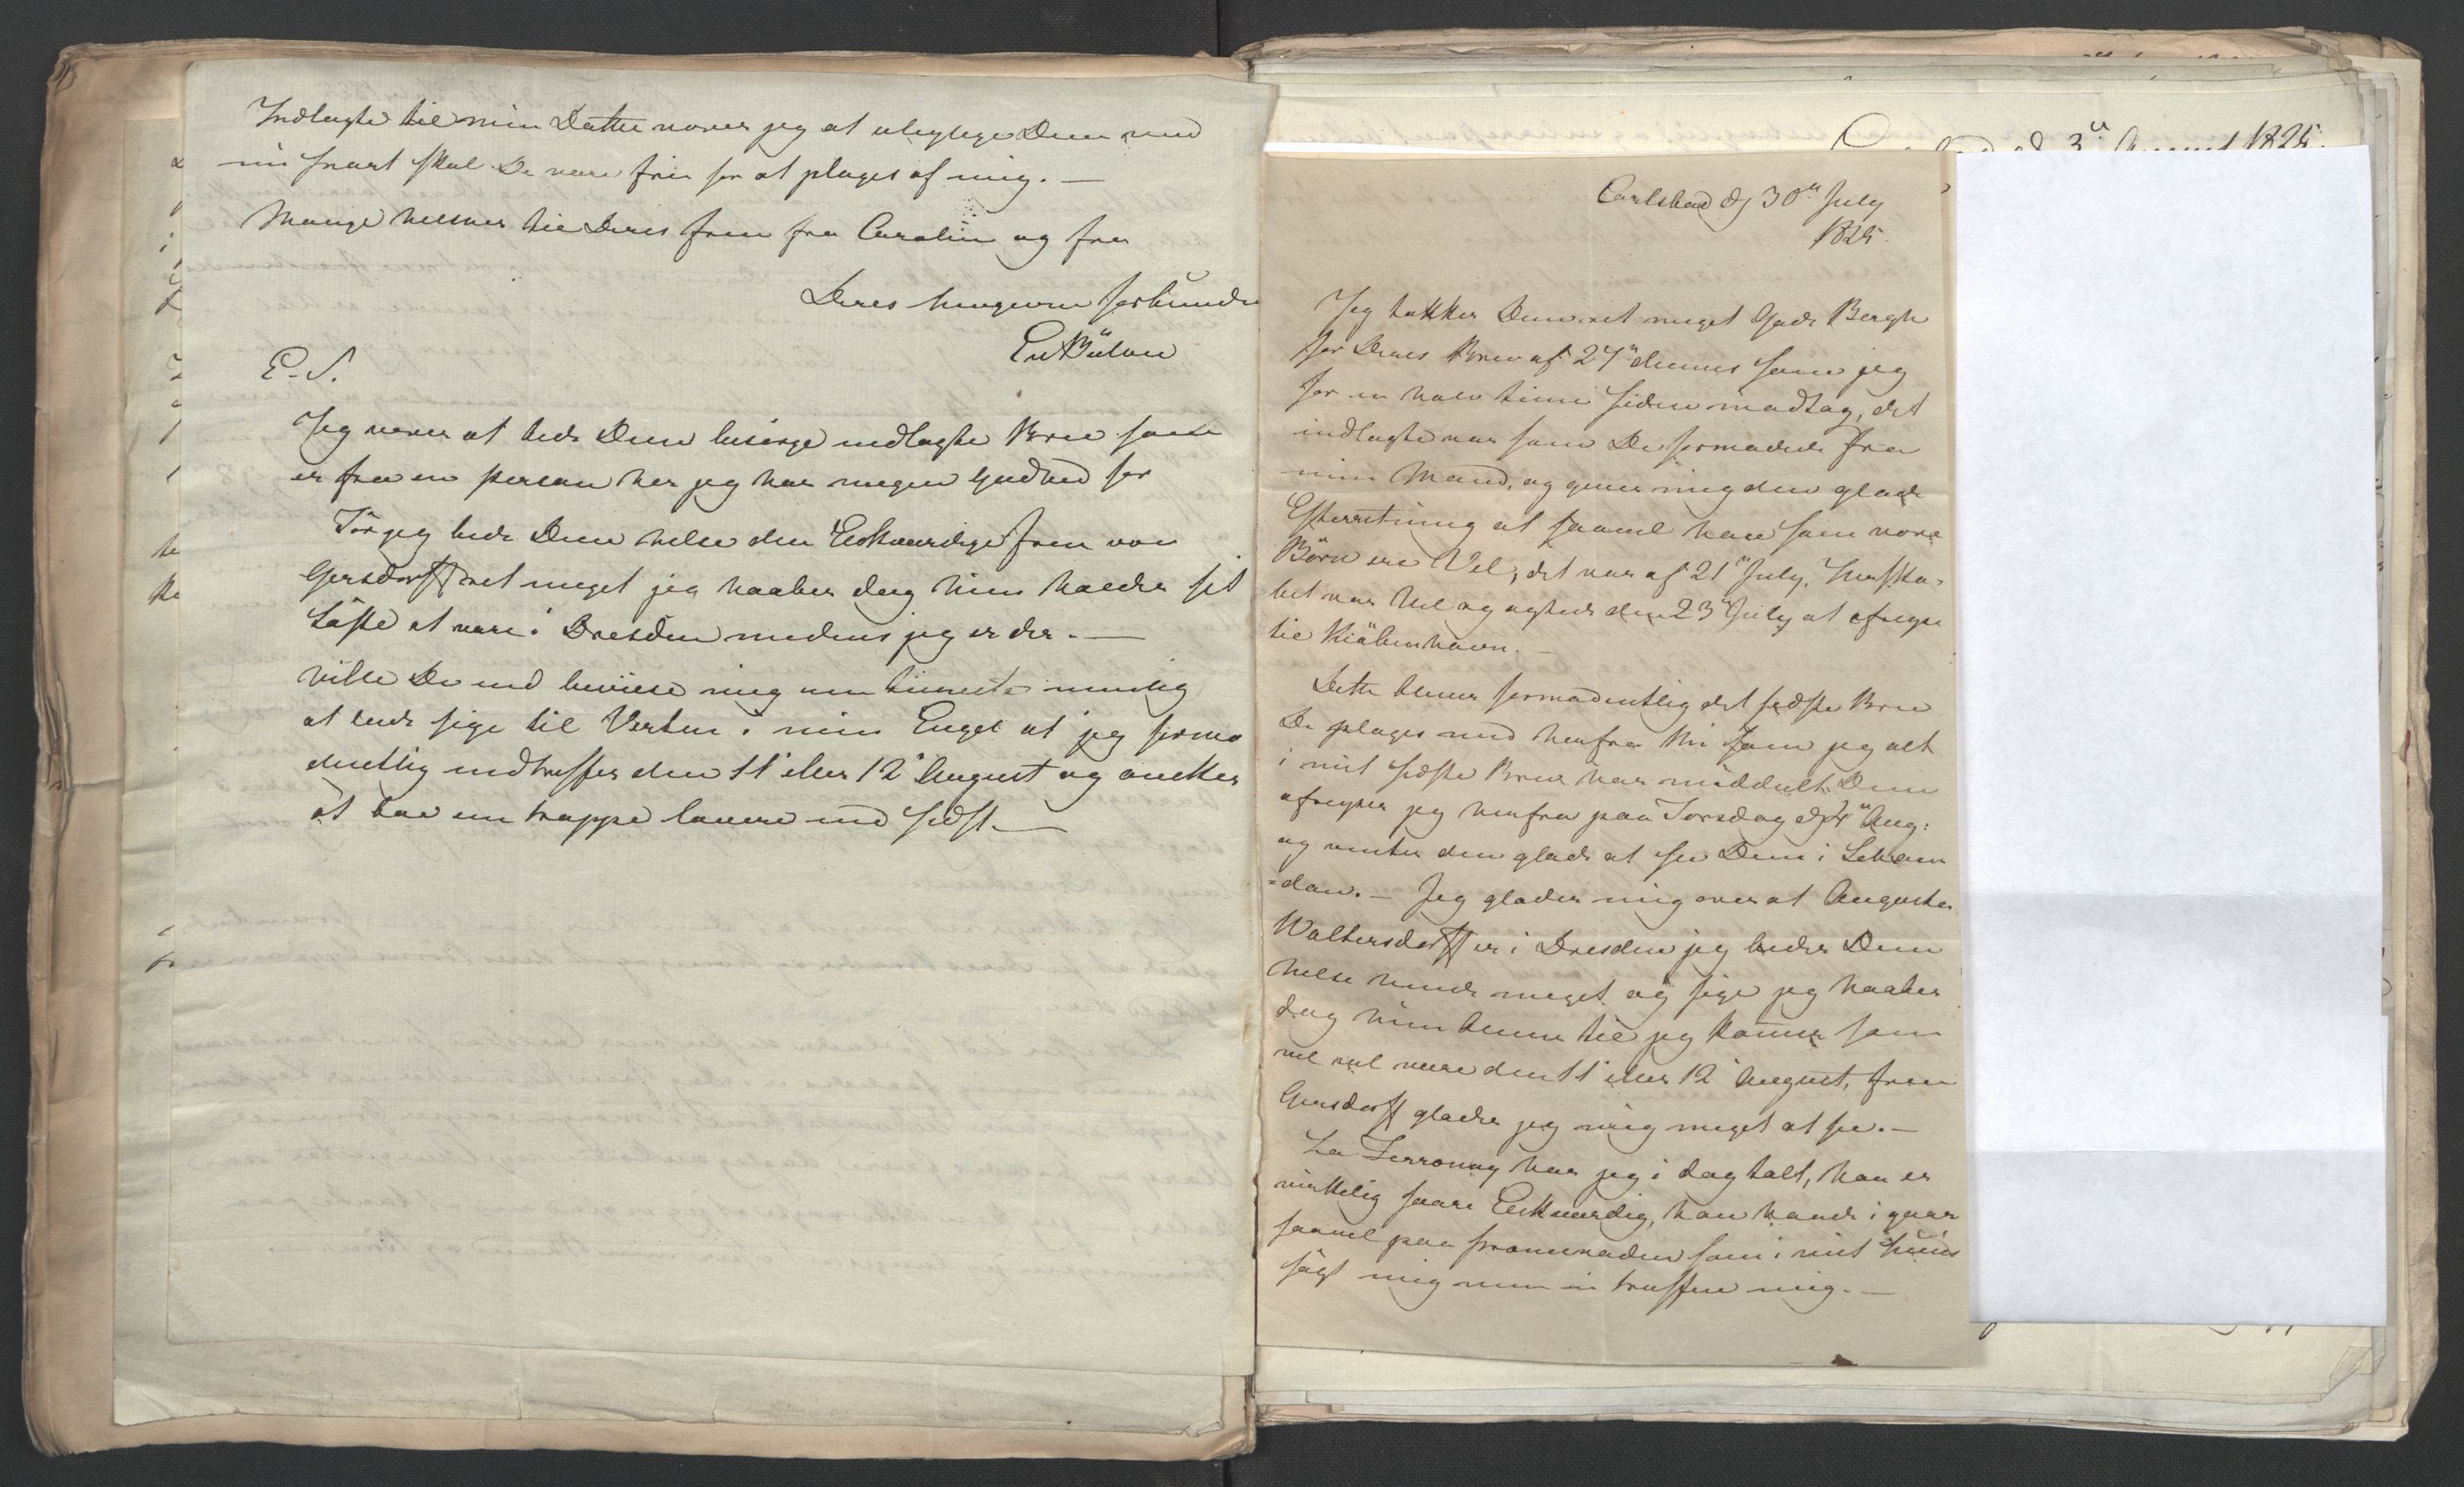 Indlagte til min Datter vover jeg at uleylige Dem med
nu snart skal De være frie for at plages af mig. —
Mange hilsner til Deres frue fra Carolin og fra
Deres hengivne forbundne
Bülow
E. S.
Jeg vover at bede Dem besørge indlagte Brev som
er fra en person her jeg har megen godhed for
Tör jeg bede Dem hilse den Elskværdige frue von
Gersdorff ret meget jeg haaber dog hun holder sit
Löfte at være i Dresden medens jeg er der. —
ville De end beviise mig een tieneste nemlig
at lade sige til Verten i min Engel at jeg formo
dentlig indtreffer den 11' eller 12' August og ønsker
at boe een trappe lavere end sidst —
3 August 1825.
Carlsbad d 30 July
1825.
Jeg takker Dem ret meget Gode Bergh
for Deres Brev af 24 dennes som jeg
for en halv time siden modtog, det
indlagte var som De formodede fra
min Mand, og giver mig den glade
Efterretning at saavel han som vore
Börn ere Vel, det var af 21 July, Herska-
bet var Vel og agtede den 23 July at afreyse
til Kiöbenhavn. —
Dette bliver formodentlig det sidste Brev
De plages med herfra thi som jeg alt
i mit sidste Brev har meddeelt Dem
afreyser jeg herfra paa Torsdag d 4 Aug:
og venter den glæde at see Dem i Schan
=dau. — Jeg glæder mig over at Augusta
Waltersdorff er i Dresden jeg beder Dem
hilse hende meget og sige jeg haaber
dog hun bliver til jeg kommer som
vel vil være den 11' eller 12' August, frue
Gersdorff glæder jeg mig meget at see. —
La Ferronay har jeg i dag talt, han er
virkelig saare Elskværdig, han havde i gaar
saavel paa promenaden som i mit huus
sögt mig men ei truffen mig. —